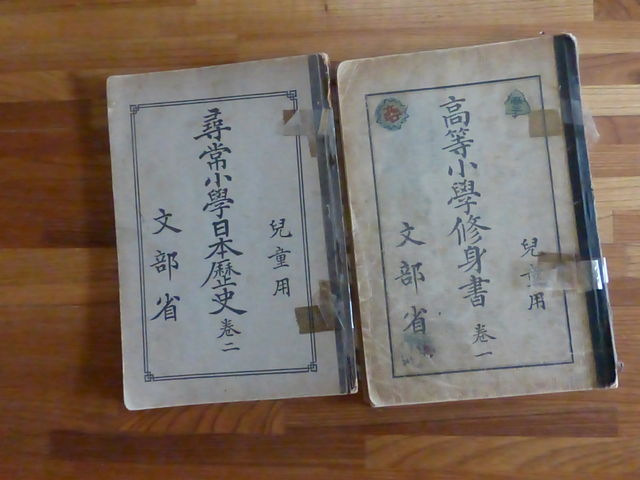 兒童用
尋常小學日本歷史 卷二
文部省
兒童用
高等小學修身書 卷一
文部省